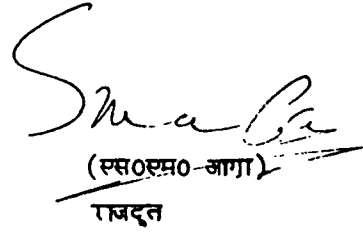 (एस0एम0 आगा)
राजदूत